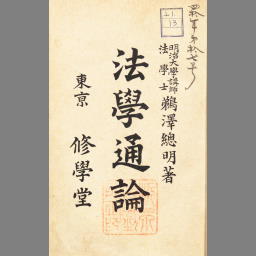 21.
13
明治大學講師
法學士
鵜澤總明著
法學通論
東京
修學堂